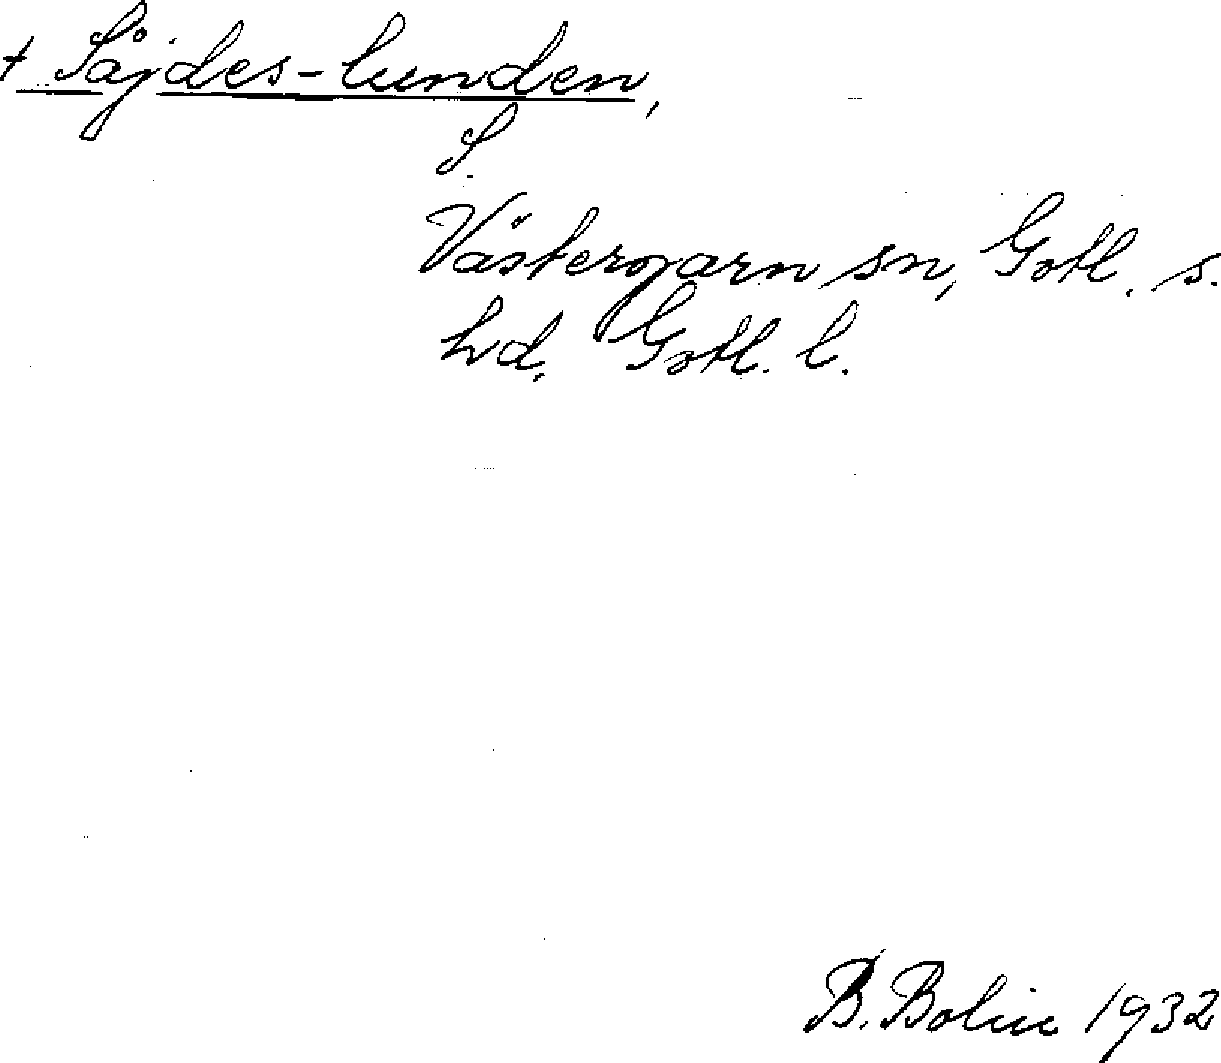 + Såjdes-lunden,
S.
Västergarn sn, Gotl. s.
hd. Gotl. l.
B. Bolin 1932